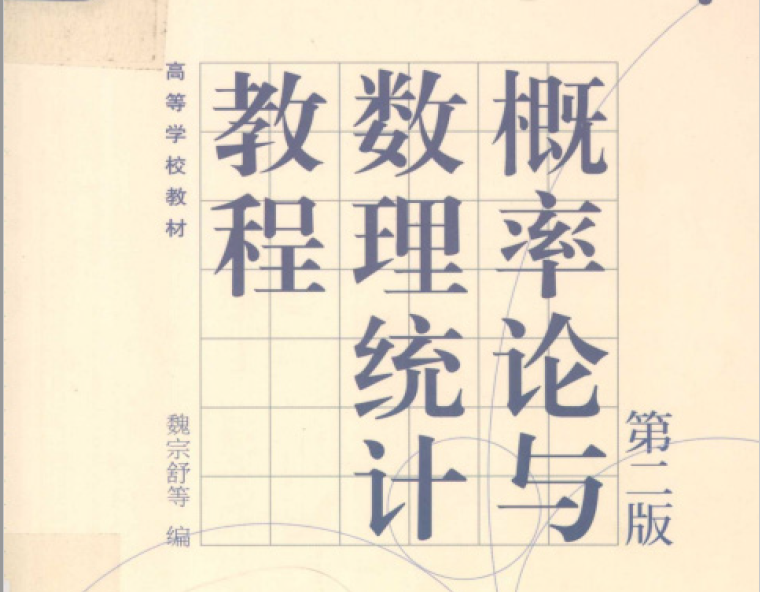 概率论与
数理统计
教程
第二版
高等学校教材
魏宗舒等 编